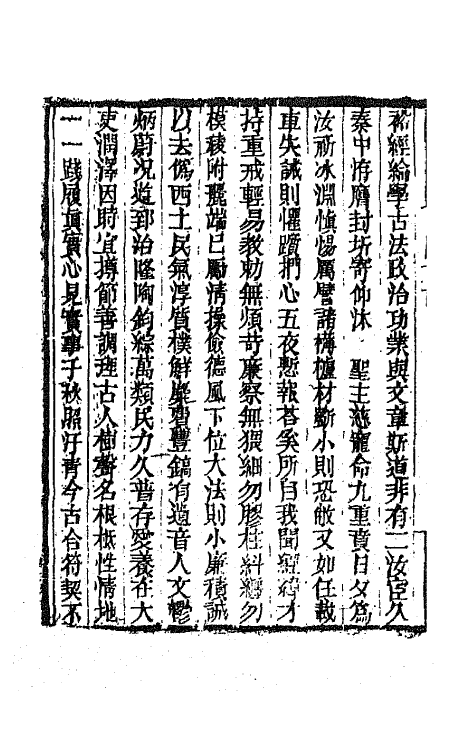 經綸學古法政治功業與文章斯道非有二汝臣久
秦中洊膺封圻寄仰沐　聖主慈寵命九重賁日夕為
汝祈冰淵慎惕厲譬諸構櫨材斲小則恐敝又如任載
車失誡則懼躋捫心五夜慙報荅奚所自我聞經緯才
持重戒輕易教勅無煩苛廉察無猥細勿膠柱糾纏勿
模稜附麗端已厲清操儉德風下位大法則小廉積誠
以去偽西土民氣淳質樸鮮縻費豐鎬有遺音人文鬱
炳蔚況逢郅治隆陶鈞綜萬類民力久普存愛養在大
吏潤澤因時宜撙節善調理古人樹聲名根柢性情地
一一踐履真實心見實事千秋照汗青今古合符契不